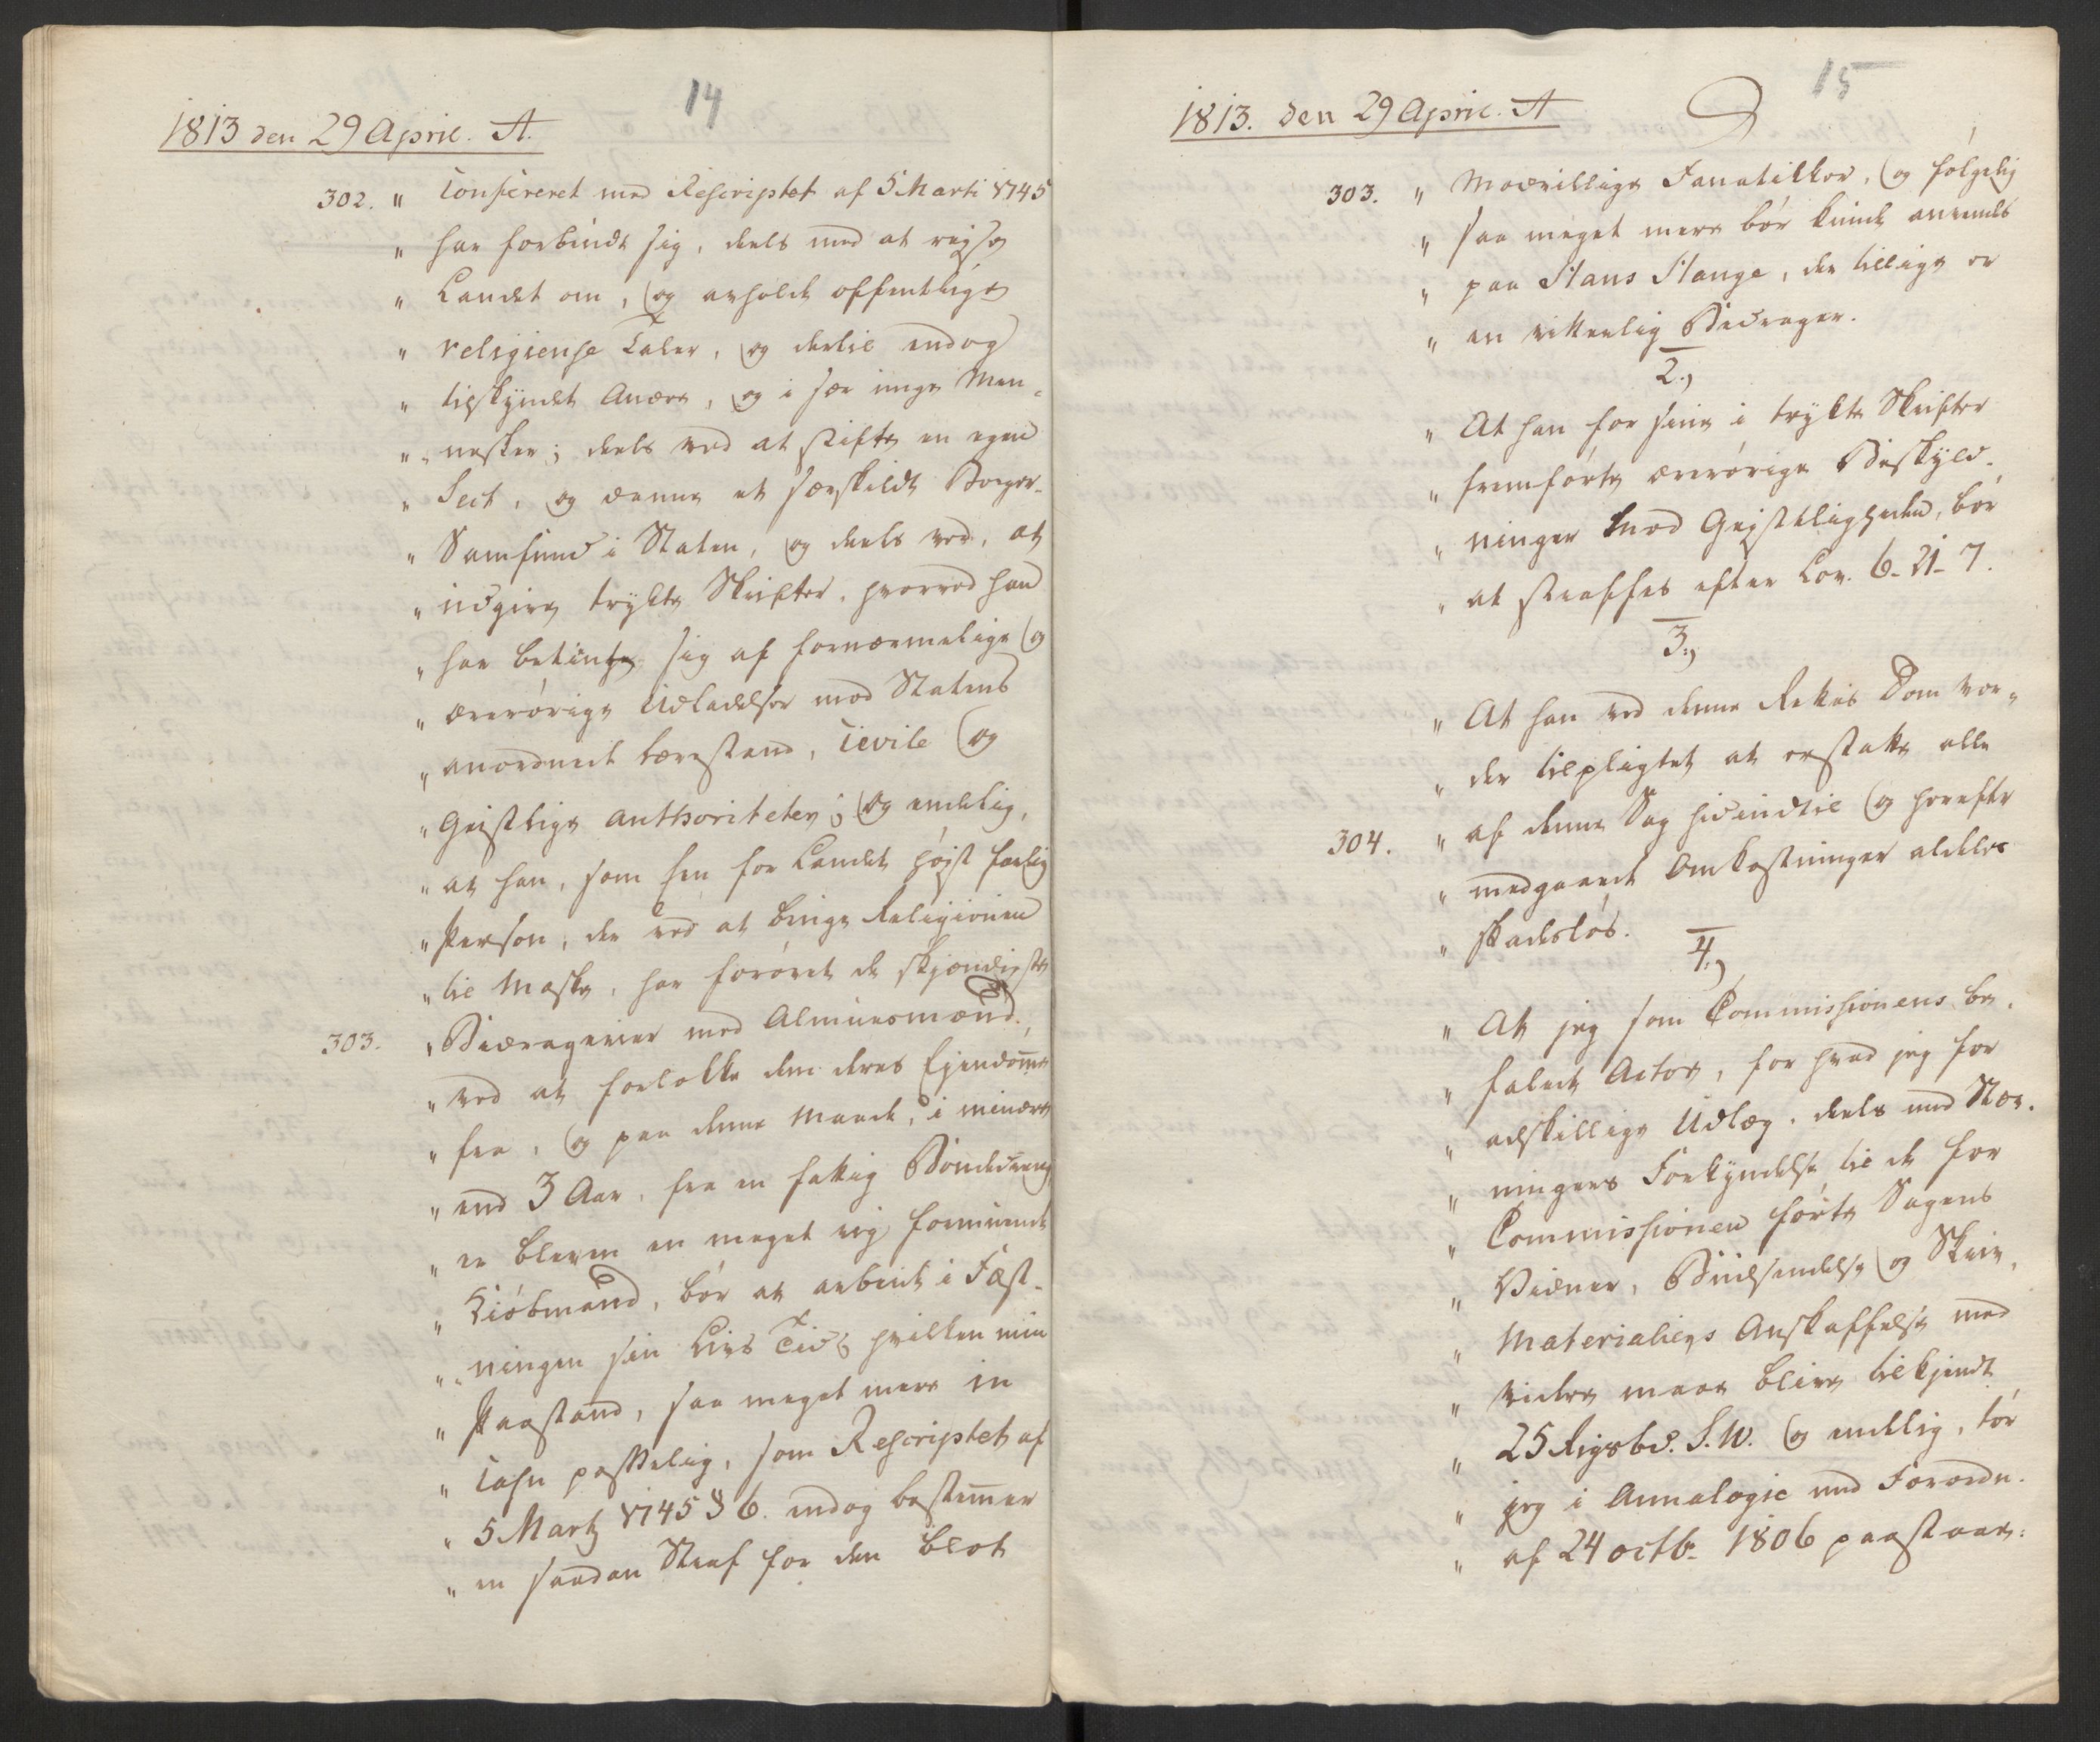 14
1813 den 29 April. A.
302. " Confereret med Rescriptet af 5 Marti 1745
" har forbrudt sig, deels med at rejse
" Landet om, og anholdt offentlige
" religieuse Taler, og dertil endog
" tilskyndet Andre, og i sær unge Men-
" "nesker; deels ved at stifte en egen
" Sect, og danne et særskildt Borger-
" Samfund i Staten, og deels ved, at
" udgive trykte Skrifter, hvorved han
" har betient sig af fornærmelige og
" ærerørige Udladelser mod Statens
" anordnede Lærestand, Civile og
" Geistlige Authoriteter; og endelig,
" at han, som en for Landet højst farlig
" Person, der ved at bruge Religionen
" til Maske, har forøvet de skjændigste
303. " Bedragerier mod Almuesmænd,
" ved at forlokke dem deres Ejendomme
" fra, og paa denne Maade, i mindre
" end 3 Aar, fra en fattig Bondedreng
" er bleven en meget rig formuende
" Kiøbmand, bør at arbeide i Fæst-
" "ningen sin Livs Tid, hvilken min
" Paastand, saa meget mere in
" Casu passelig, som Rescriptet af
" 5 Martz 1745 § 6. endog bestemmer
" en saadan Straf for den blot
15
1813. den 29 April. A
303. " Modvillige Fanatikker, og følgelig
" saa meget mere bør kunde anvendes
" paa Hans Hauge, der tillige er
" en vitterlig Bedrager.
2.)
" At han for sine i trykte Skrifter
" fremførte ærerørige Beskyld-
" ninger mod Geistligheden, bør
" at straffes efter Lov. 6-21-7.
3.)
" At han ved denne Rettes Dom vor-
" der tilpligtet at erstatte alle
304. " af denne Sag hidindtil og herefter
" medgaaede Omkostninger aldeles
" skadesløs.
4.)
" At jeg som Commissionens be-
" falede Actor, for hvad jeg for
" adskillige Udlæg, deels med Stæv-
" ningers Forkyndelse til de for
" Commissionen førte Sagens
" Vidner, Budsendelse og Skriv-
" Materialiers Anskaffelse med
" videre maae blive tilkjendt
" 25 Rigsbd. S.W. og endelig, tør
" jeg i Annalogie med Forordn.
" af 24 octb. 1806 paastaae: